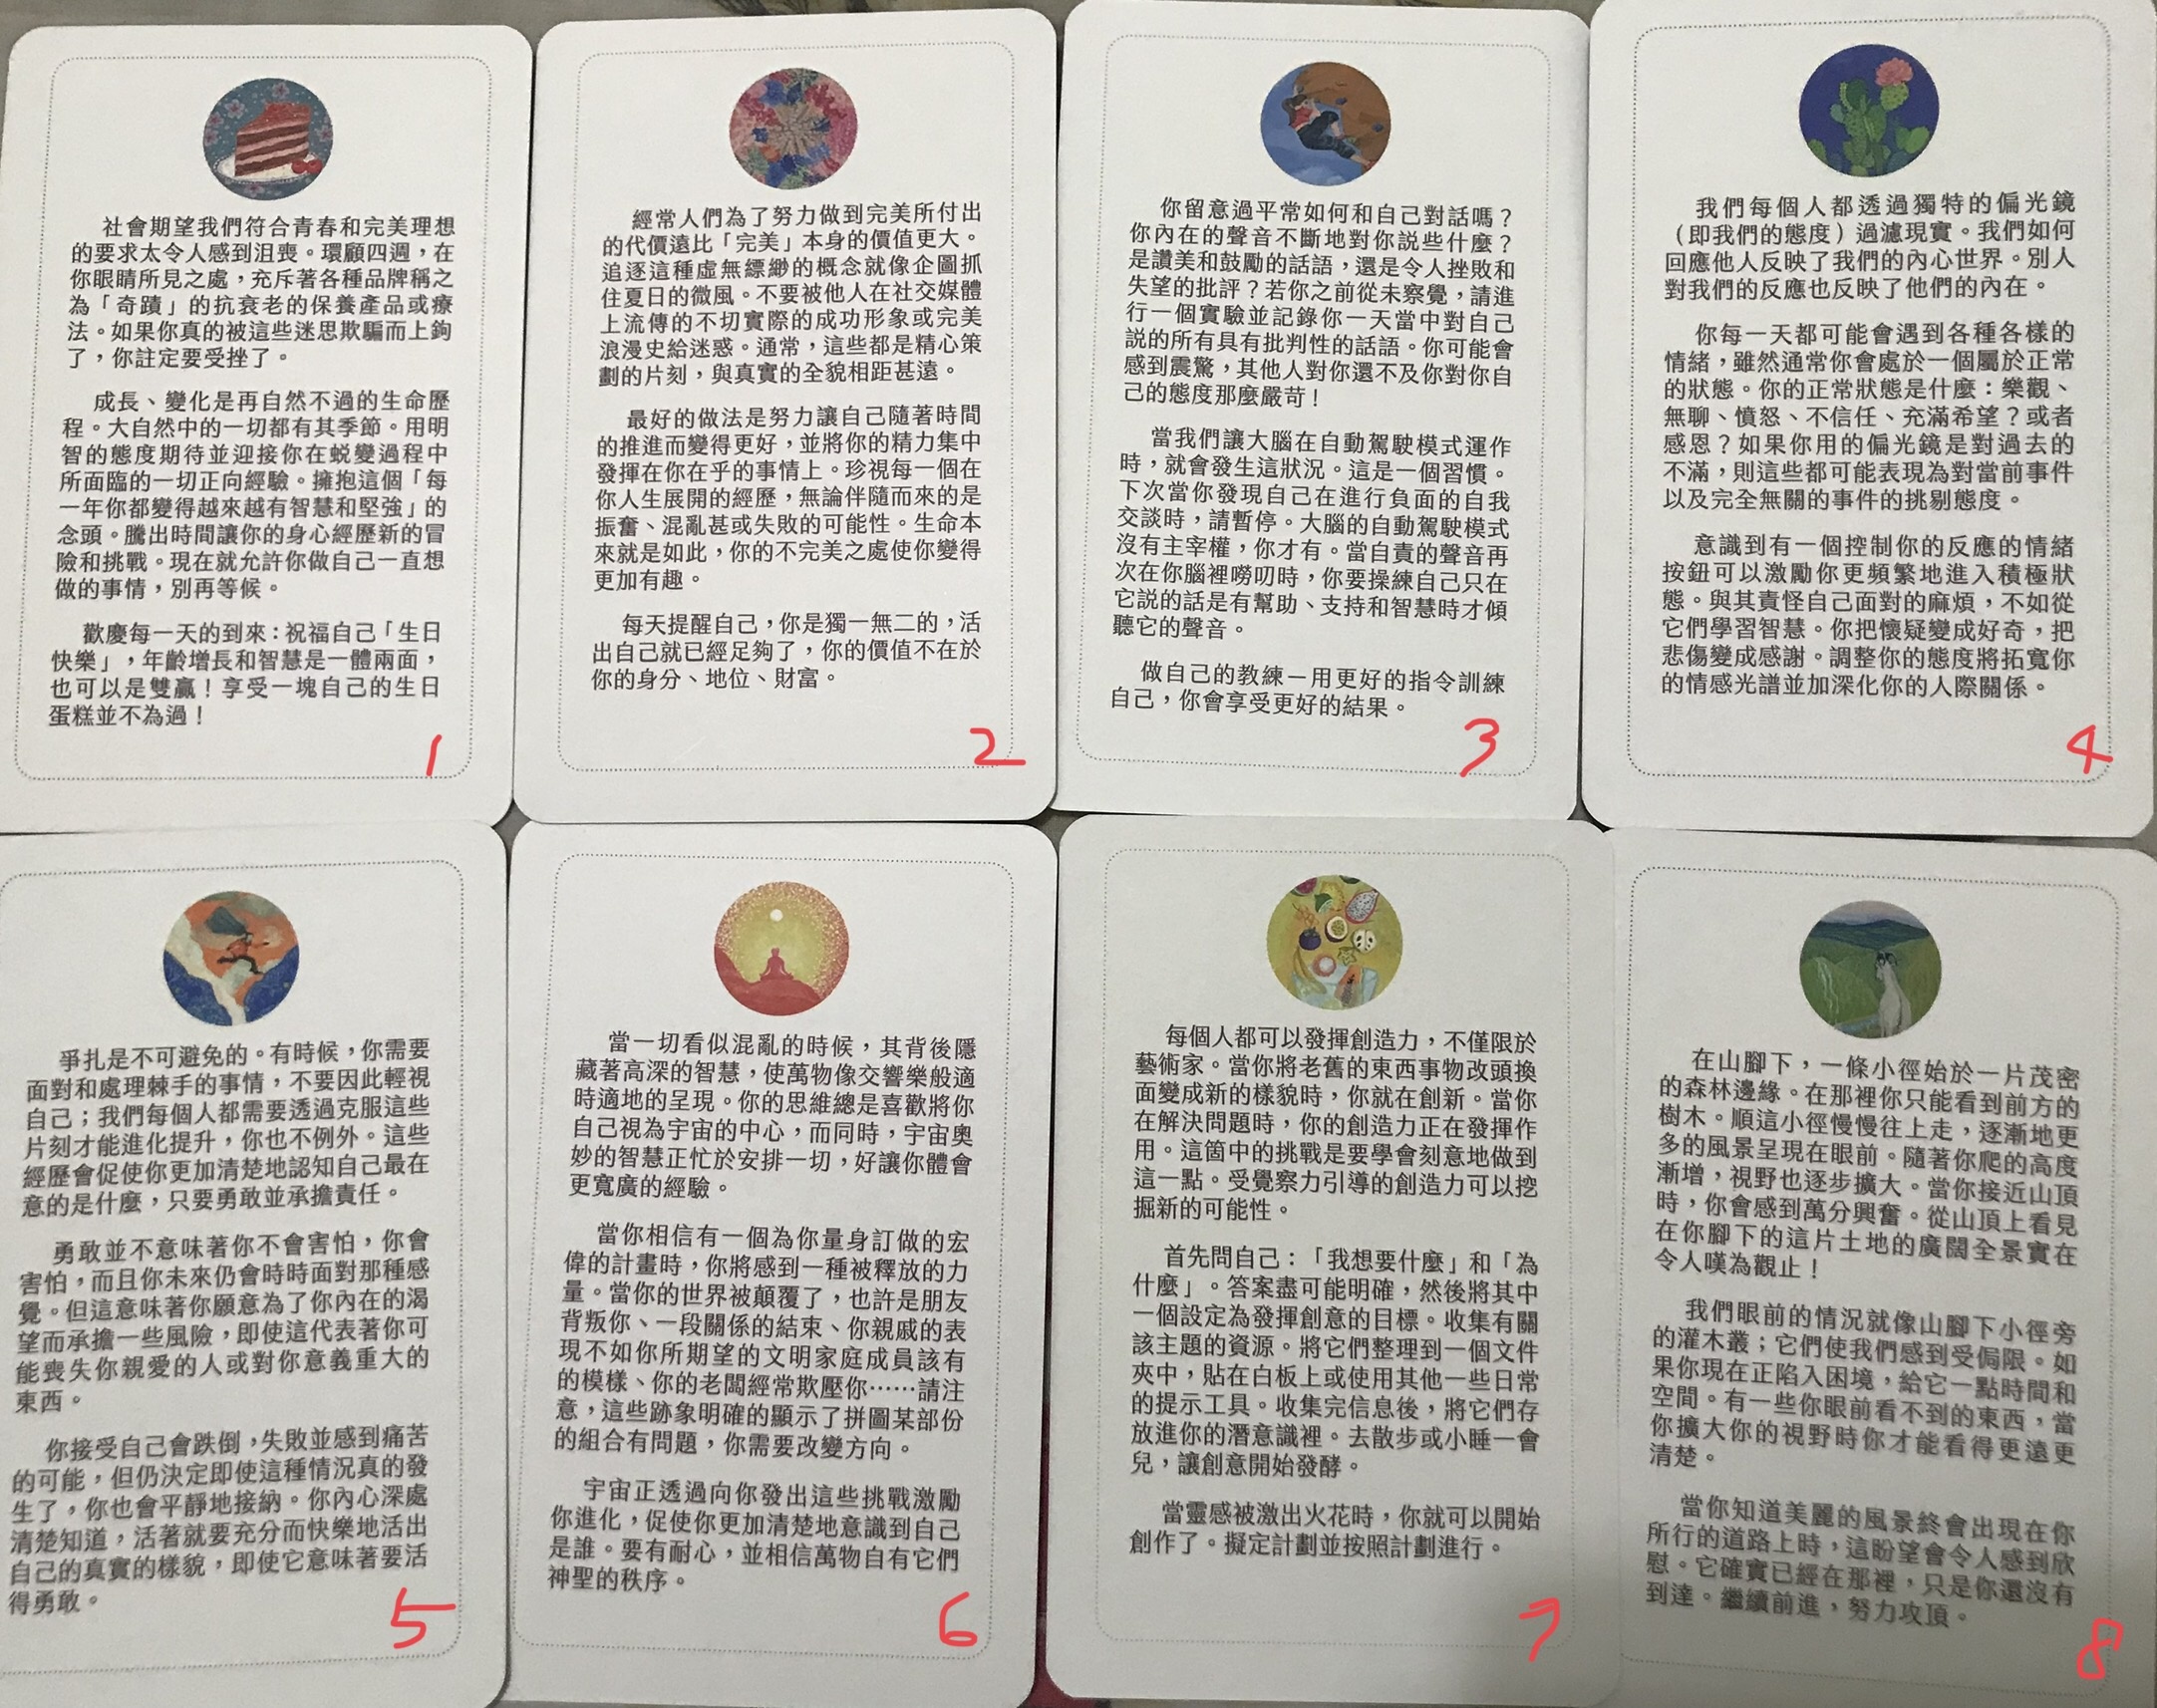 社會期望我們符合青春和完美理想
的要求太令人感到沮喪。環顧四週，在
你眼睛所見之處，充斥著各種品牌稱之
為「奇蹟」的抗衰老的保養產品或療
法。如果你真的被這些迷思欺騙而上鉤
了，你註定要受挫了。
成長、變化是再自然不過的生命歷
程。大自然中的一切都有其季節。用明
智的態度期待並迎接你在蛻變過程中
所面臨的一切正向經驗。擁抱這個「每
一年你都變得越來越有智慧和堅強」的
念頭。騰出時間讓你的身心經歷新的冒
險和挑戰。現在就允許你做自己一直想
做的事情，別再等候。
歡慶每一天的到來：祝福自己「生日
快樂」，年齡增長和智慧是一體兩面，
也可以是雙贏！享受一塊自己的生日
蛋糕並不為過！
1
經常人們為了努力做到完美所付出
的代價遠比「完美」本身的價值更大。
追逐這種虛無縹緲的概念就像企圖抓
住夏日的微風。不要被他人在社交媒體
上流傳的不切實際的成功形象或完美
浪漫史給迷惑。通常，這些都是精心策
劃的片刻，與真實的全貌相距甚遠。
最好的做法是努力讓自己隨著時間
的推進而變得更好，並將你的精力集中
發揮在你在乎的事情上。珍視每一個在
你人生展開的經歷，無論伴隨而來的是
振奮、混亂甚或失敗的可能性。生命本
來就是如此，你的不完美之處使你變得
更加有趣。
每天提醒自己，你是獨一無二的，活
出自己就已經足夠了，你的價值不在於
你的身分、地位、財富。
2
你留意過平常如何和自己對話嗎？
你內在的聲音不斷地對你說些什麼？
是讚美和鼓勵的話語，還是令人挫敗和
失望的批評？若你之前從未察覺，請進
行一個實驗並記錄你一天當中對自己
說的所有具有批判性的話語。你可能會
感到震驚，其他人對你還不及你對你自
己的態度那麼嚴苛！
當我們讓大腦在自動駕駛模式運作
時，就會發生這狀況。這是一個習慣。
下次當你發現自己在進行負面的自我
交談時，請暫停。大腦的自動駕駛模式
沒有主宰權，你才有。當自責的聲音再
次在你腦裡嘮叨時，你要操練自己只在
它說的話是有幫助、支持和智慧時才傾
聽它的聲音。
做自己的教練－用更好的指令訓練
自己，你會享受更好的結果。
3
我們每個人都透過獨特的偏光鏡
（即我們的態度）過濾現實。我們如何
回應他人反映了我們的內心世界。別人
對我們的反應也反映了他們的內在。
你每一天都可能會遇到各種各樣的
情緒，雖然通常你會處於一個屬於正常
的狀態。你的正常狀態是什麼：樂觀、
無聊、憤怒、不信任、充滿希望？或者
感恩？如果你用的偏光鏡是對過去的
不滿，則這些都可能表現為對當前事件
以及完全無關的事件的挑剔態度。
意識到有一個控制你的反應的情緒
按鈕可以激勵你更頻繁地進入積極狀
態。與其責怪自己面對的麻煩，不如從
它們學習智慧。你把懷疑變成好奇，把
悲傷變成感謝。調整你的態度將拓寬你
的情感光譜並加深化你的人際關係。
4
爭扎是不可避免的。有時候，你需要
面對和處理棘手的事情，不要因此輕視
自己；我們每個人都需要透過克服這些
片刻才能進化提升，你也不例外。這些
經歷會促使你更加清楚地認知自己最在
意的是什麼，只要勇敢並承擔責任。
勇敢並不意味著你不會害怕，你會
害怕，而且你未來仍會時時面對那種感
覺。但這意味著你願意為了你內在的渴
望而承擔一些風險，即使這代表著你可
能喪失你親愛的人或對你意義重大的
東西。
你接受自己會跌倒，失敗並感到痛苦
的可能，但仍決定即使這種情況真的發
生了，你也會平靜地接納。你內心深處
清楚知道，活著就要充分而快樂地活出
自己的真實的樣貌，即使它意味著要活
得勇敢。
5
當一切看似混亂的時候，其背後隱
藏著高深的智慧，使萬物像交響樂般適
時適地的呈現。你的思維總是喜歡將你
自己視為宇宙的中心，而同時，宇宙奧
妙的智慧正忙於安排一切，好讓你體會
更寬廣的經驗。
當你相信有一個為你量身訂做的宏
偉的計畫時，你將感到一種被釋放的力
量。當你的世界被顛覆了，也許是朋友
背叛你、一段關係的結束、你親戚的表
現不如你所期望的文明家庭成員該有
的模樣、你的老闆經常欺壓你⋯⋯請注
意，這些跡象明確的顯示了拼圖某部份
的組合有問題，你需要改變方向。
宇宙正透過向你發出這些挑戰激勵
你進化，促使你更加清楚地意識到自己
是誰。要有耐心，並相信萬物自有它們
神聖的秩序。
6
每個人都可以發揮創造力，不僅限於
藝術家。當你將老舊的東西事物改頭換
面變成新的樣貌時，你就在創新。當你
在解決問題時，你的創造力正在發揮作
用。這箇中的挑戰是要學會刻意地做到
這一點。受覺察力引導的創造力可以挖
掘新的可能性。
首先問自己：「我想要什麼」和「為
什麼」。答案盡可能明確，然後將其中
一個設定為發揮創意的目標。收集有關
該主題的資源。將它們整理到一個文件
夾中，貼在白板上或使用其他一些日常
的提示工具。收集完信息後，將它們存
放進你的潛意識裡。去散步或小睡一會
兒，讓創意開始發酵。
當靈感被激出火花時，你就可以開始
創作了。擬定計劃並按照計劃進行。
7
在山腳下，一條小徑始於一片茂密
的森林邊緣。在那裡你只能看到前方的
樹木。順這小徑慢慢往上走，逐漸地更
多的風景呈現在眼前。隨著你爬的高度
漸增，視野也逐步擴大。當你接近山頂
時，你會感到萬分興奮。從山頂上看見
在你腳下的這片土地的廣闊全景實在
令人嘆為觀止！
我們眼前的情況就像山腳下小徑旁
的灌木叢；它們使我們感到受侷限。如
果你現在正陷入困境，給它一點時間和
空間。有一些你眼前看不到的東西，當
你擴大你的視野時你才能看得更遠更
清楚。
當你知道美麗的風景終會出現在你
所行的道路上時，這盼望會令人感到欣
慰。它確實已經在那裡，只是你還沒有
到達。繼續前進，努力攻頂。
8